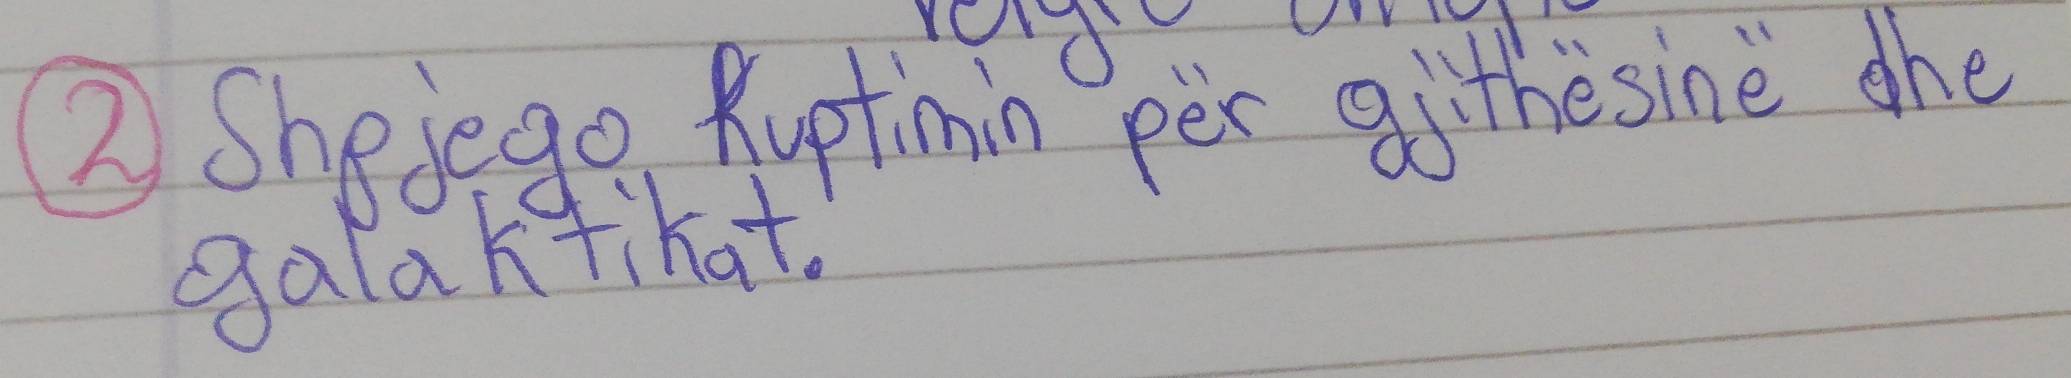 ② Shpjego Kuptimin për gjithësinë dhe
galaktikat.